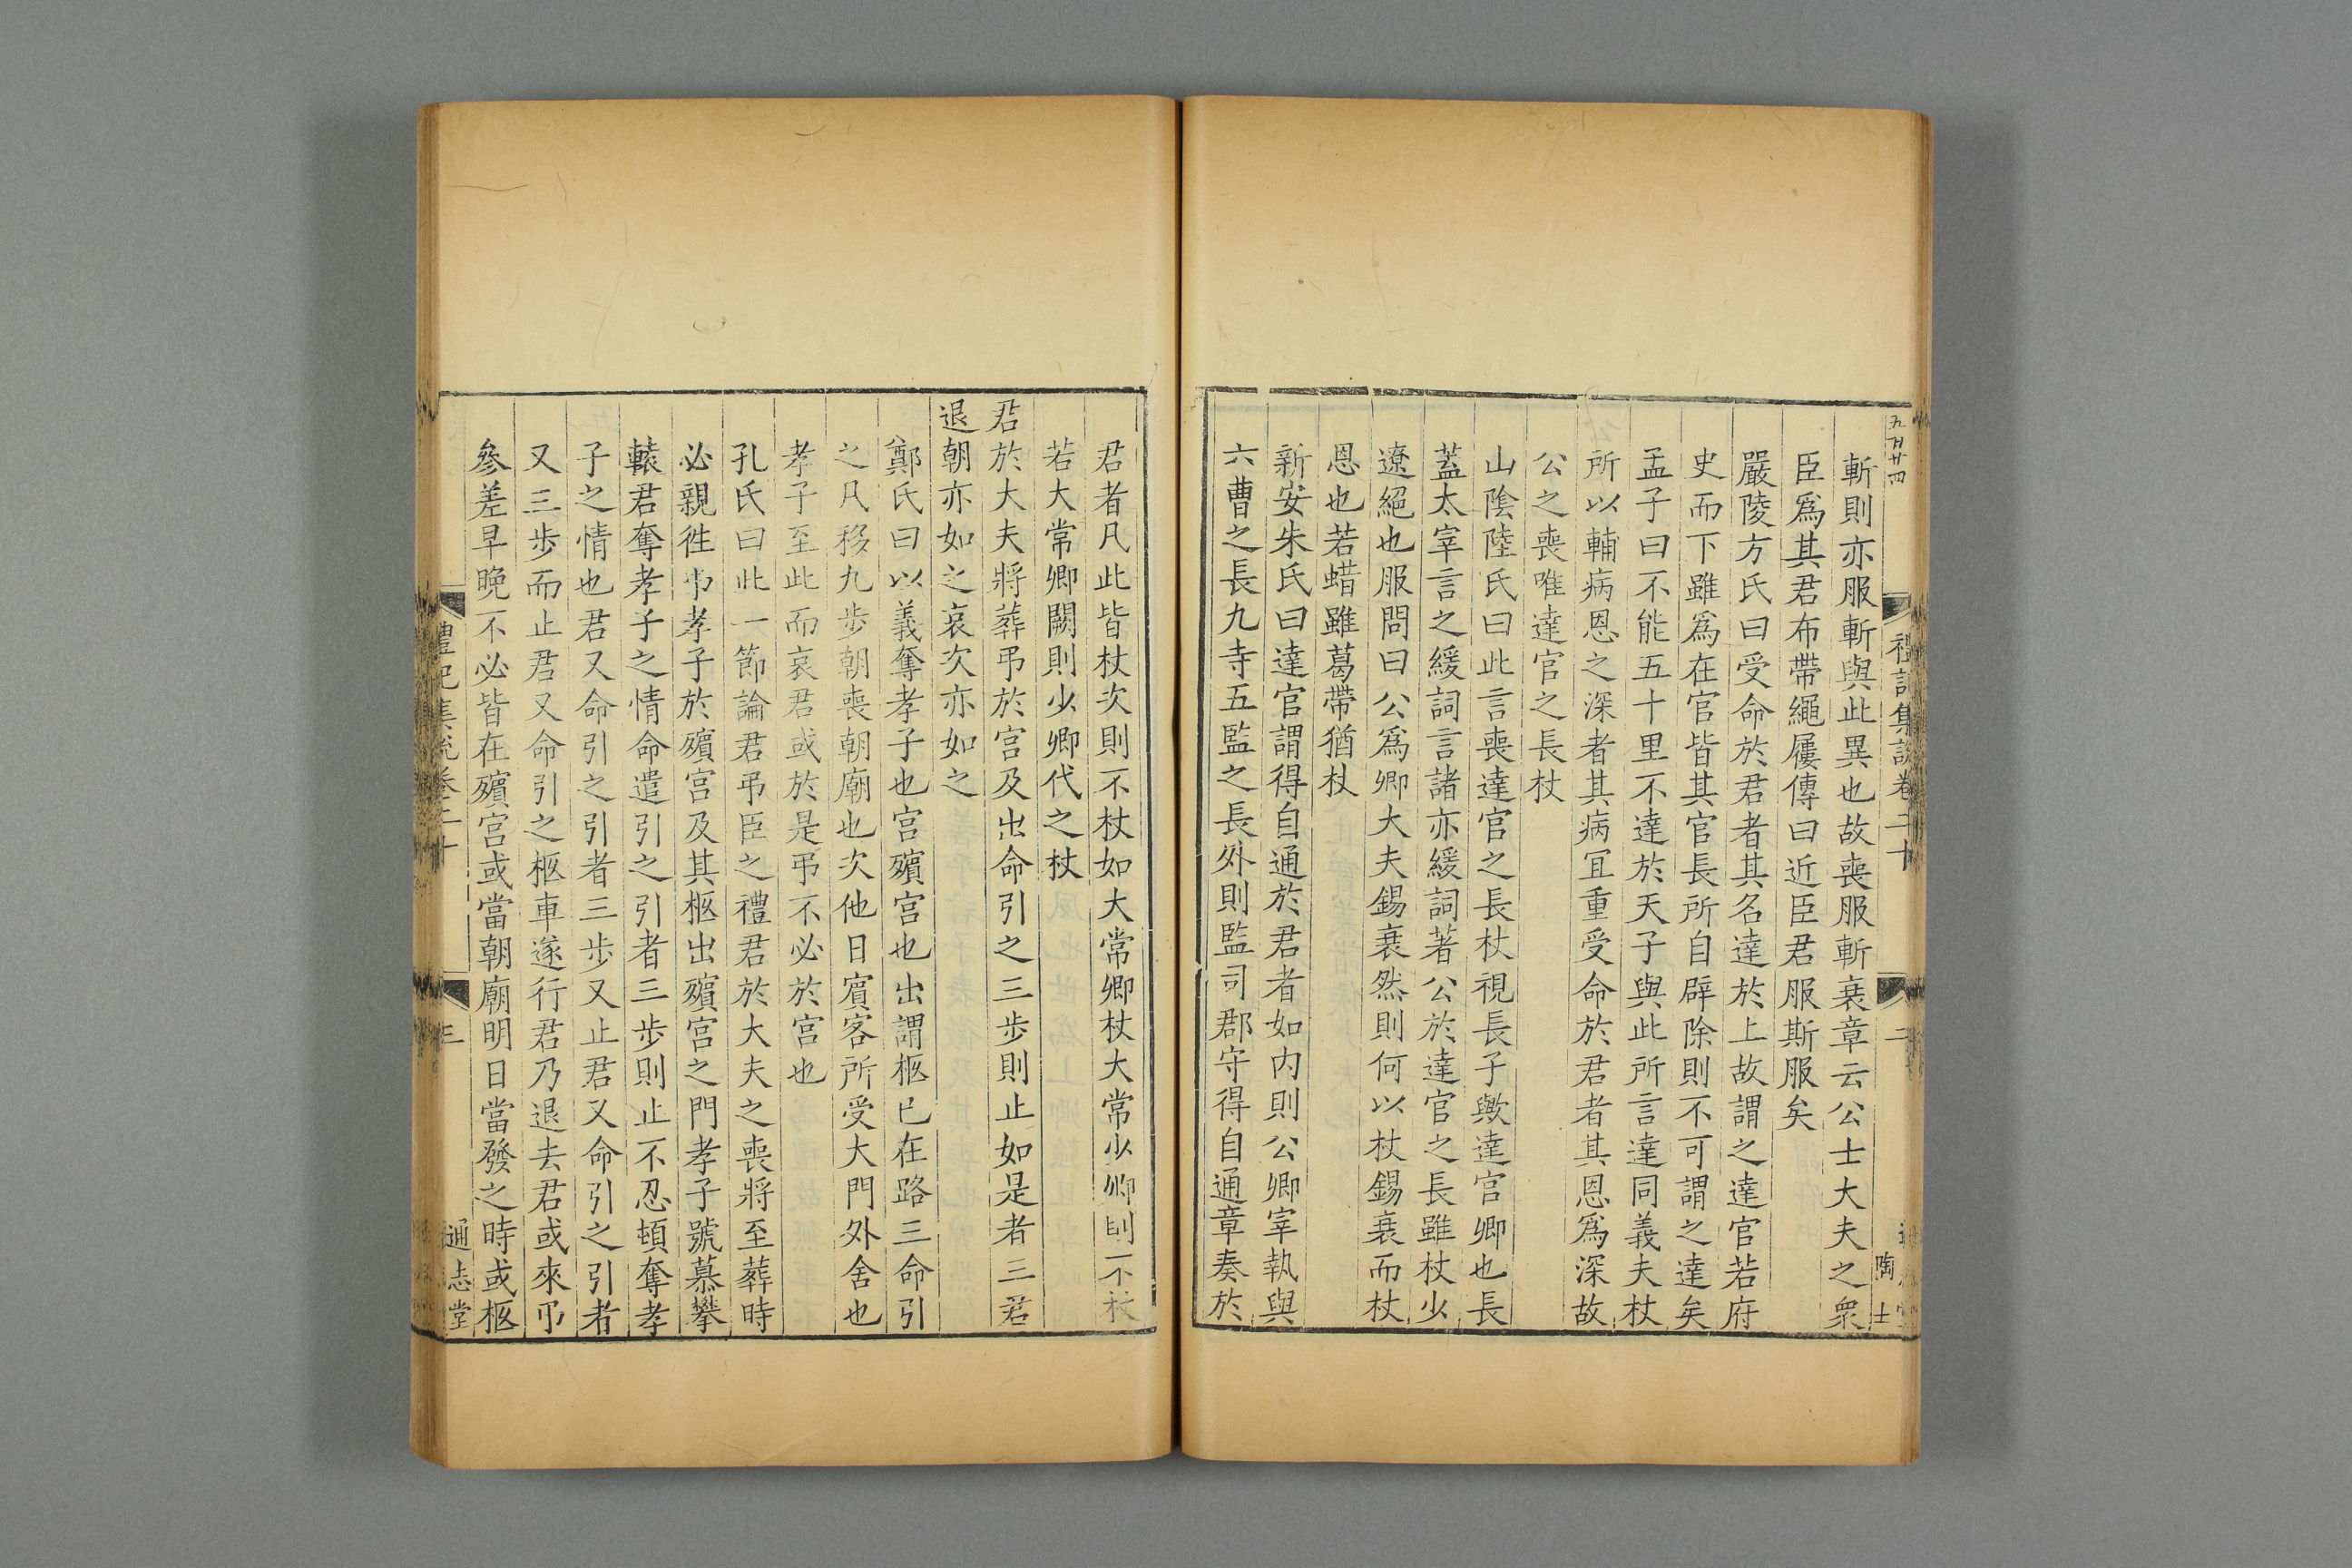 五百廿四
禮記集說卷二十
二
陶士
斬則亦服斬與此異也故喪服斬衰章云公士大夫之衆
臣爲其君布帶繩屨傳曰近臣君服斯服矣
嚴陵方氏曰受命於君者其名達於上故謂之達官若府
史而下雖爲在官皆其官長所自辟除則不可謂之達矣
孟子曰不能五十里不達於天子與此所言達同義夫杖
所以輔病恩之深者其病冝重受命於君者其恩爲深故
公之喪唯達官之長杖
山陰陸氏曰此言喪達官之長杖視長子歟達官卿也長
蓋太宰言之緩詞言諸亦緩詞著公於達官之長雖杖少
遼絕也服問曰公爲卿大夫錫衰然則何以杖錫衰而杖
恩也若蜡雖葛帶猶杖
新安朱氏曰達官謂得自通於君者如内則公卿宰執與
六曹之長九寺五監之長外則監司郡守得自通章奏於
君者凡此皆杖次則不杖如大常卿杖大常少卿則不杖
若大常卿闕則少卿代之杖
君於大夫將葬弔於宮及出命引之三步則止如是者三君
退朝亦如之哀次亦如之
鄭氏曰以義奪孝子也宮殯宮也出謂柩已在路三命引
之凡移九步朝喪朝廟也次他日賓客所受大門外舍也
孝子至此而哀君或於是弔不必於宮也
孔氏曰此一節論君弔臣之禮君於大夫之喪將至葬時
必親徃弔孝子於殯宮及其柩出殯宮之門孝子號慕攀
轅君奪孝子之情命遣引之引者三步則止不忍頓奪孝
子之情也君又命引之引者三步又止君又命引之引者
又三步而止君又命引之柩車遂行君乃退去君或來弔
參差早晚不必皆在殯宮或當朝廟明日當發之時或柩
禮記集說卷二十
三
通志堂